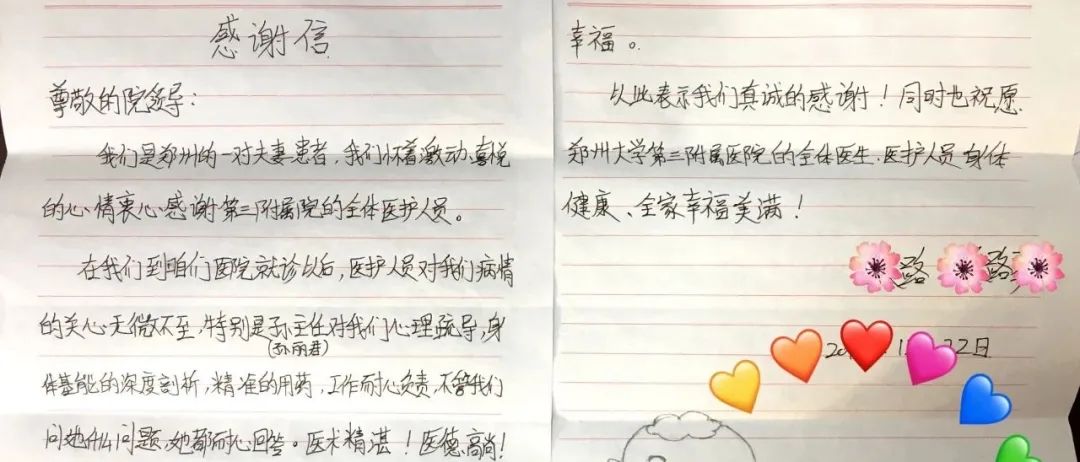 感谢信
尊敬的院领导：
我们是郑州的一对夫妻患者，我们怀着激动、喜悦
的心情衷心感谢第三附属院的全体医护人员。
在我们到咱们医院就诊以后，医护人员对我们病情
的关心无微不至，特别是孙主任对我们心理疏导，身
(孙丽君)
体基能的深度剖析，精准的用药，工作耐心负责，不管我们
问她什么问题，她都耐心回答。医术精湛！医德高尚！
幸福。
以此表示我们真诚的感谢！同时也祝愿
郑州大学第三附属医院的全体医生、医护人员身体
健康、全家幸福美满！
路
22日